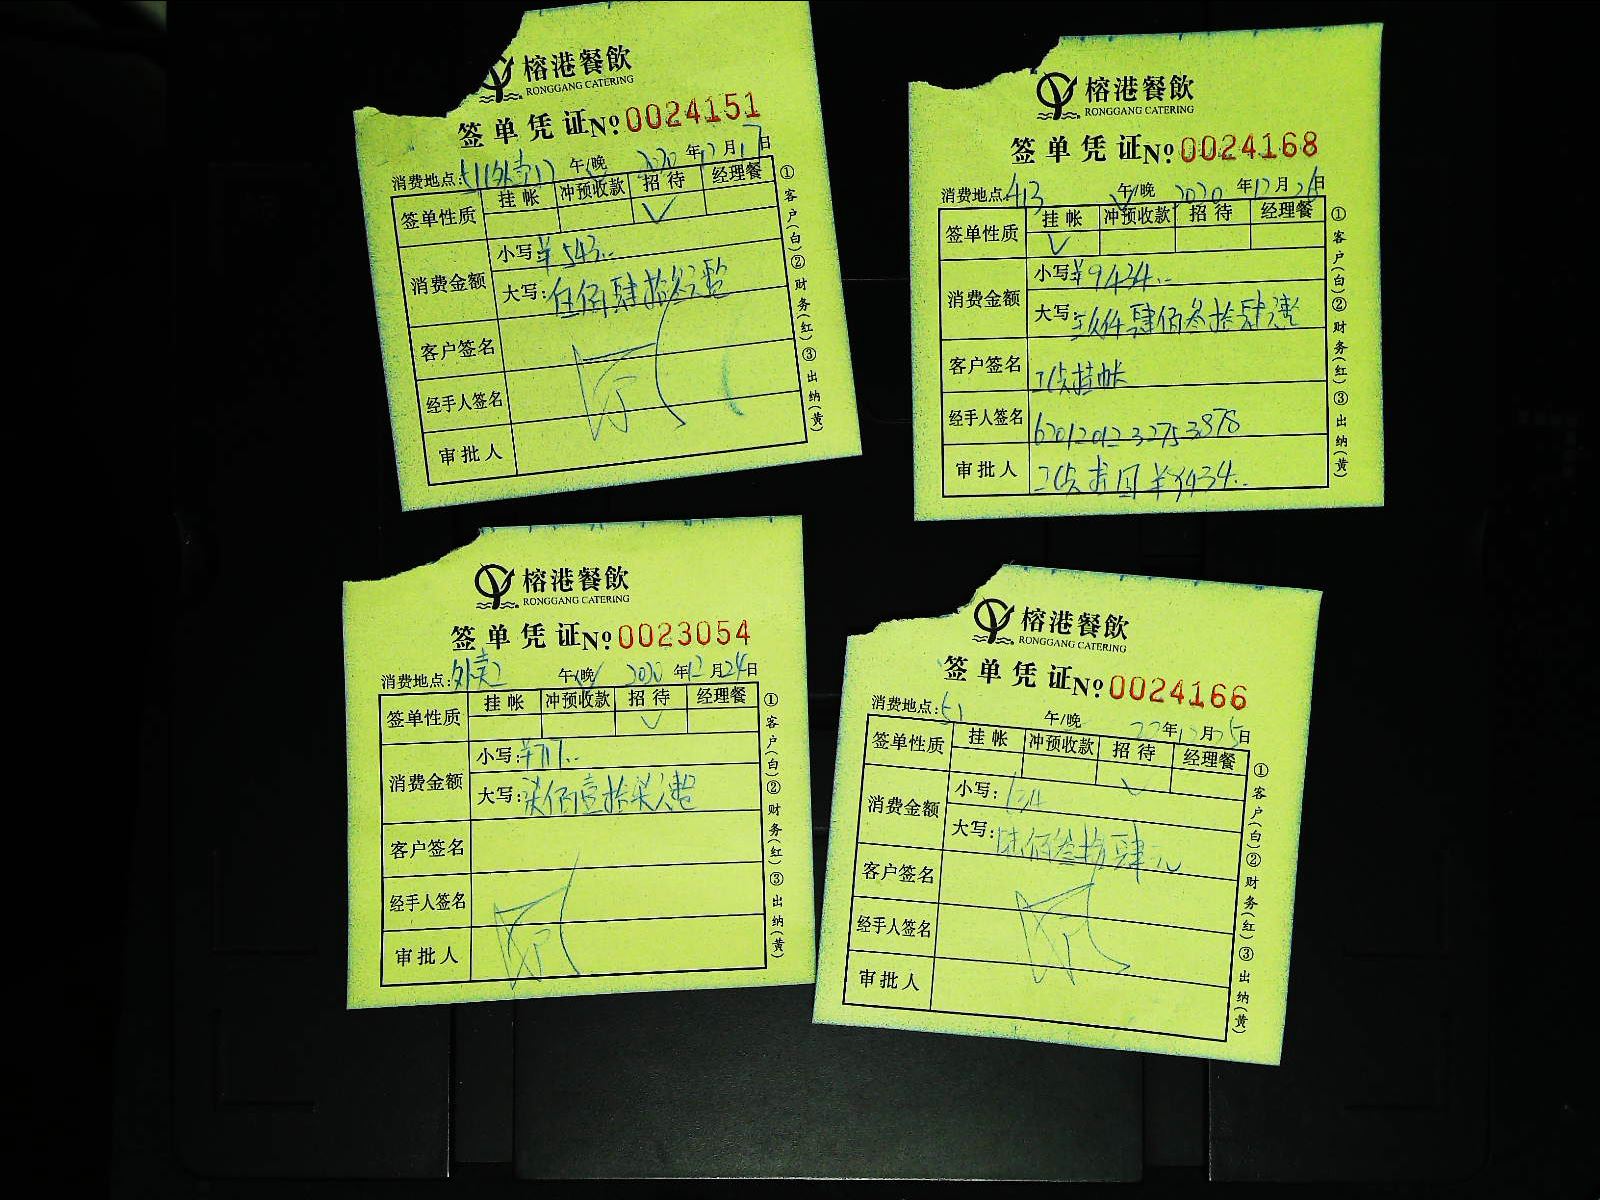 榕港餐飲
RONGGANG CATERING
签单凭证 №0024151
消费地点: 午/晚 2020年12月17日
签单性质 挂帐 冲预收款 招待 经理餐
✓
消费金额 小写:¥543..
大写:伍佰肆拾叁元整
客户签名
经手人签名
审批人
①客户(白)②财务(红)③出纳(黄)
榕港餐飲
RONGGANG CATERING
签单凭证 №0024168
消费地点:413 午/晚 2020年12月日
签单性质 挂帐 冲预收款 招待 经理餐
✓
消费金额 小写:¥9434..
大写:玖仟肆佰叁拾肆元整
客户签名 工贸挂帐
经手人签名 6201201232753878
审批人 ¥9434..
①客户(白)②财务(红)③出纳(黄)
榕港餐飲
RONGGANG CATERING
签单凭证 №0023054
消费地点:外卖2 午/晚 2020年12月24日
签单性质 挂帐 冲预收款 招待 经理餐
✓
消费金额 小写:¥717..
大写:柒佰壹拾柒元整
客户签名
经手人签名
审批人
①客户(白)②财务(红)③出纳(黄)
榕港餐飲
RONGGANG CATERING
签单凭证 №0024166
消费地点:51 午/晚 年12月25日
签单性质 挂帐 冲预收款 招待 经理餐
✓
消费金额 小写:634
大写:陆佰叁拾肆元
客户签名
经手人签名
审批人
①客户(白)②财务(红)③出纳(黄)